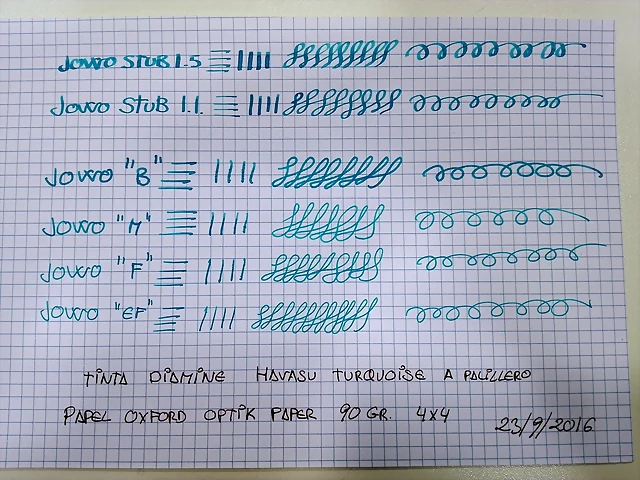 JOWO STUB 1.5
JOWO STUB 1.1.
JOWO "B"
JOWO "M"
JOWO "F"
JOWO "EF"
TINTA DIAMINE HAVASU TURQUOISE A PALILLERO
PAPEL OXFORD OPTIK PAPER 90 GR. 4x4
23/9/2016